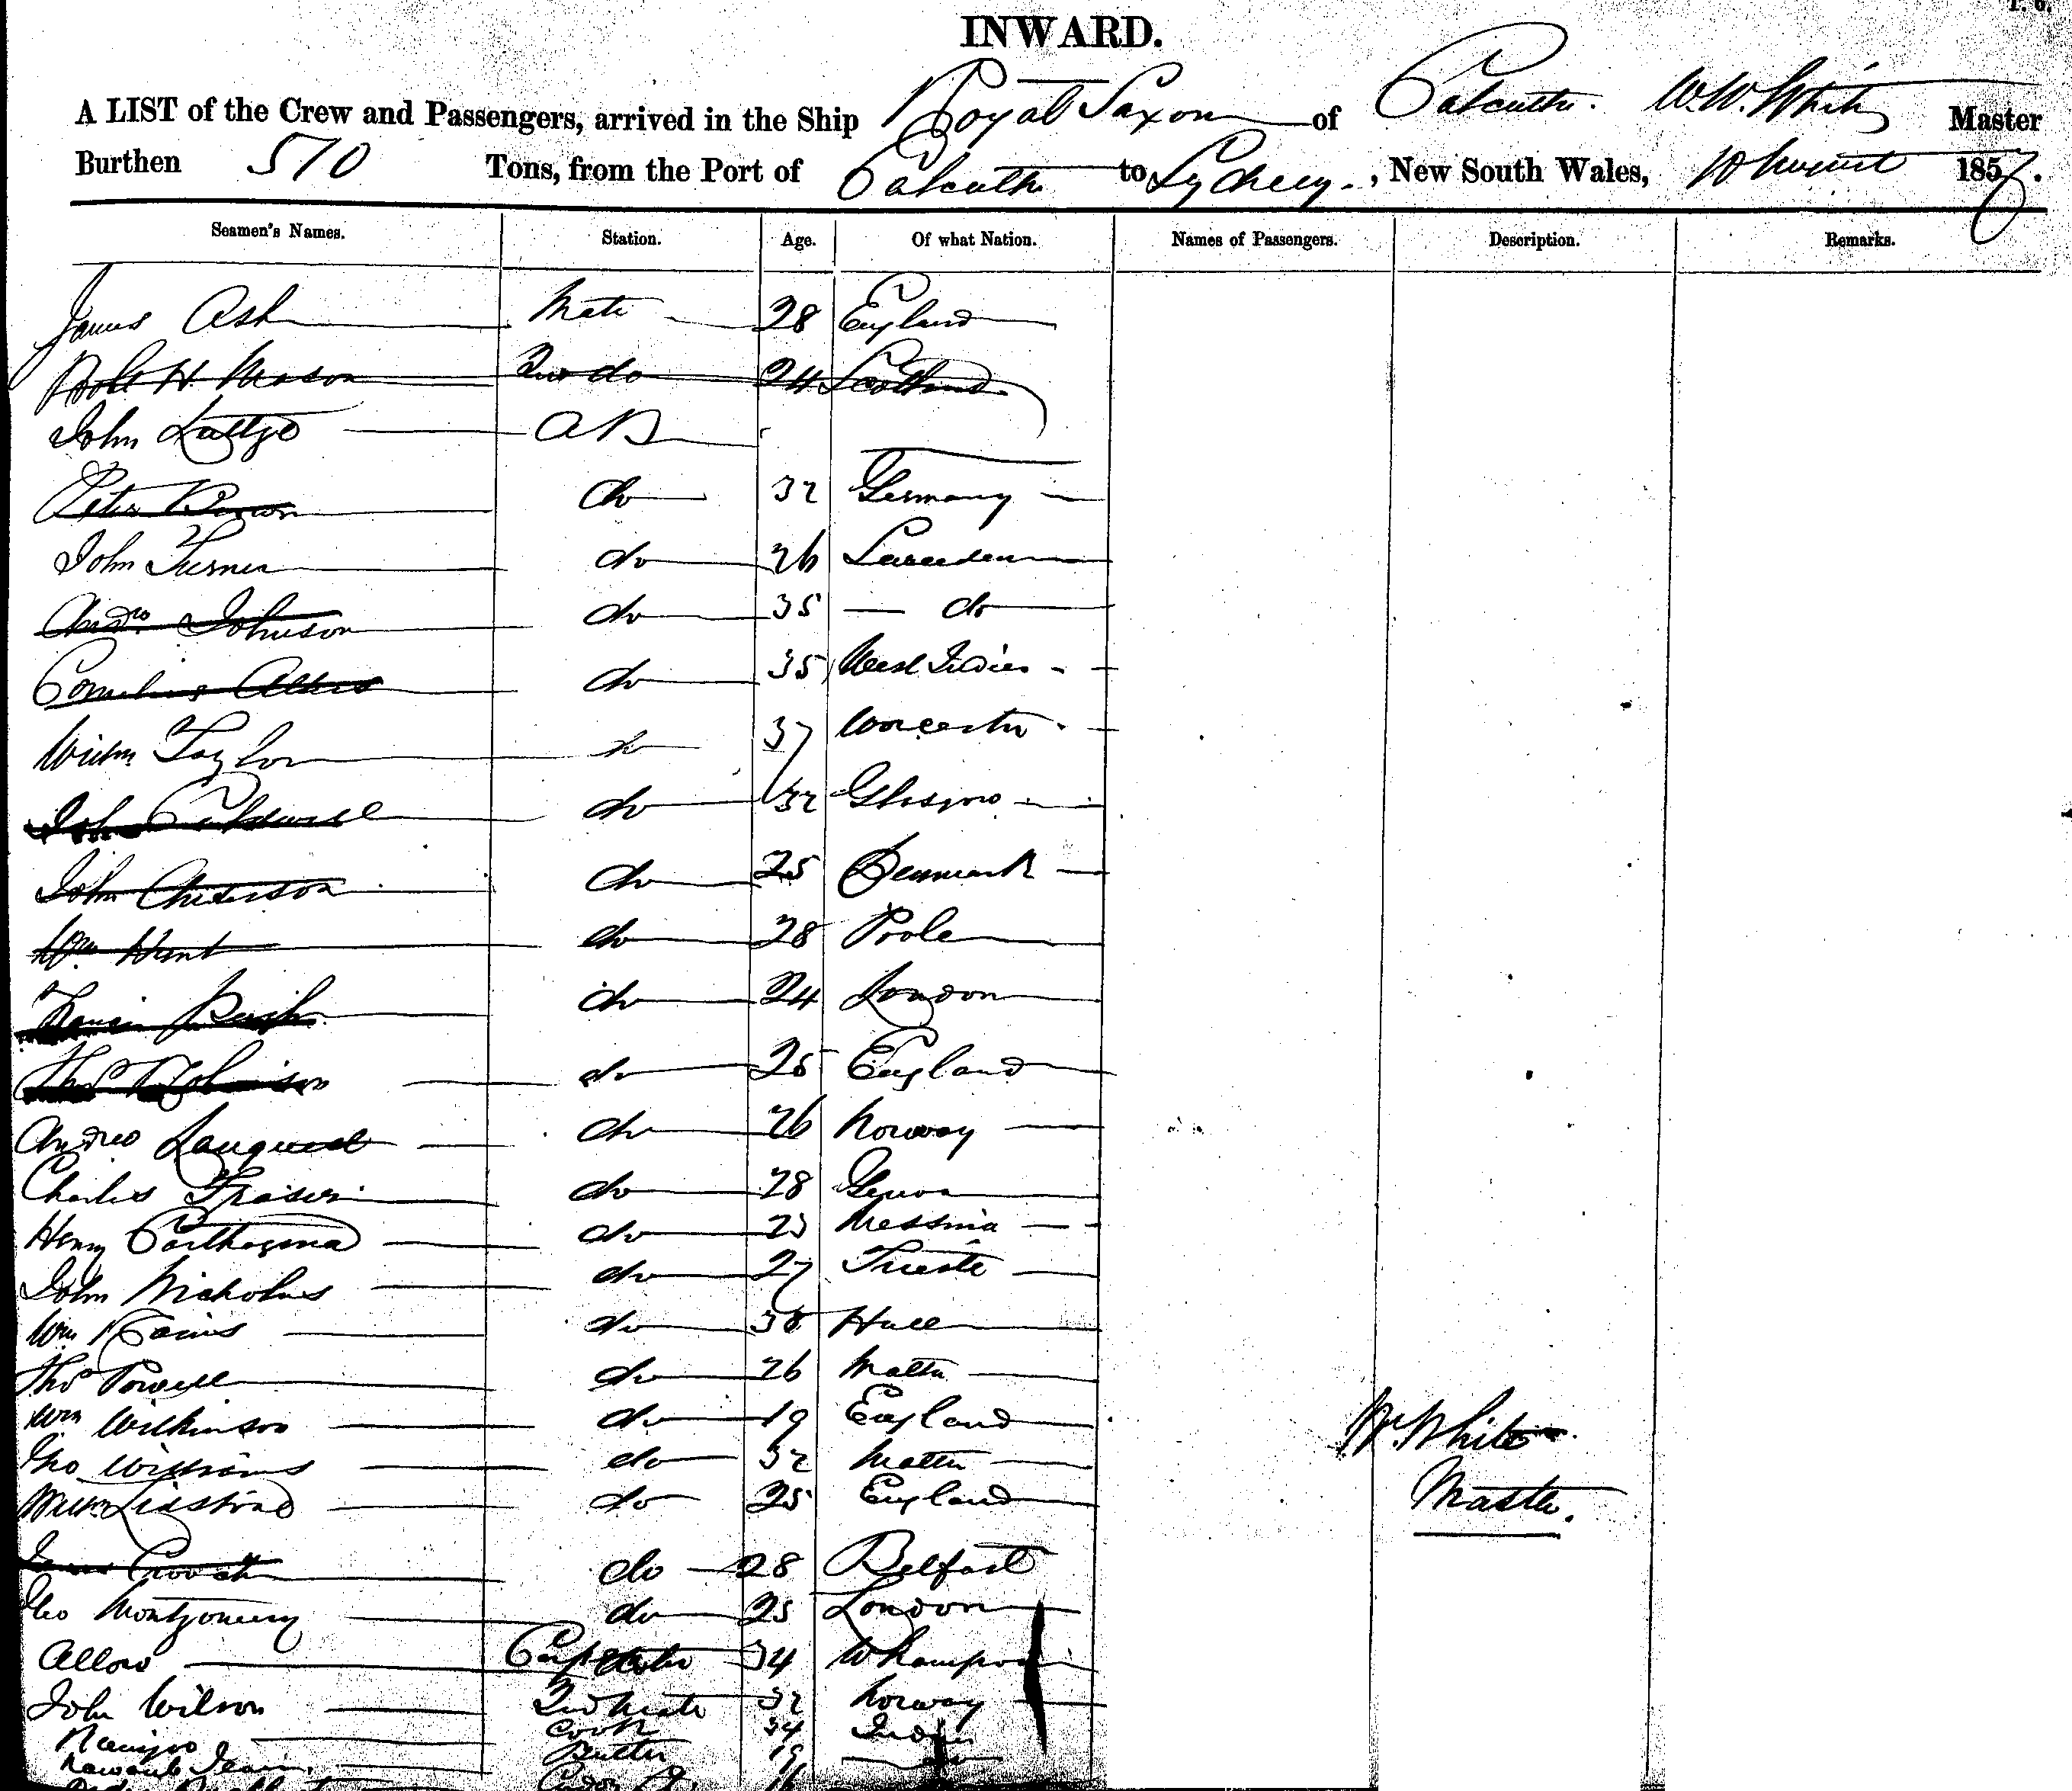 INWARD.
A LIST of the Crew and Passengers, arrived in the Ship Royal Saxon of Calcutta. W.W. White Master
Burthen 510 Tons, from the Port of Calcutta to Sydney., New South Wales, 185
Seamen's Names. Station. Age. Of what Nation. Names of Passengers. Description. Remarks.
James Ash Mate 28 England
Robt H. Mason 2nd do 24 Scotland
John AB
Peter Brown do 32 Germany
John Turner do 26 Sweeden
Andrw Johnson do 35 do
Cornelius do 35 West Indies
Willm Taylor do 37 Worcester
John do 32 Glasgow
John Anderson do 25 Denmark
Wm Hunt do 28 Poole
do 24 London
Thos do 25 England
Andrew do 26 Norway
Charles do 28 Genoa
Henry Carthagena do 23 Messina
John Nicholas do 27 Trieste
Wm do 38 Hull
Thos Powell do 26 Malta
Wm Wilkinson do 19 England
Williams do 32 Malta
do 25 England
W. White
Master.
do 28 Belfast
Geo Montgomery do 25 London
Allow Carpenter 34 Whampoa
John Wilson 2nd Mate 32 Norway
Cook 34 India
19